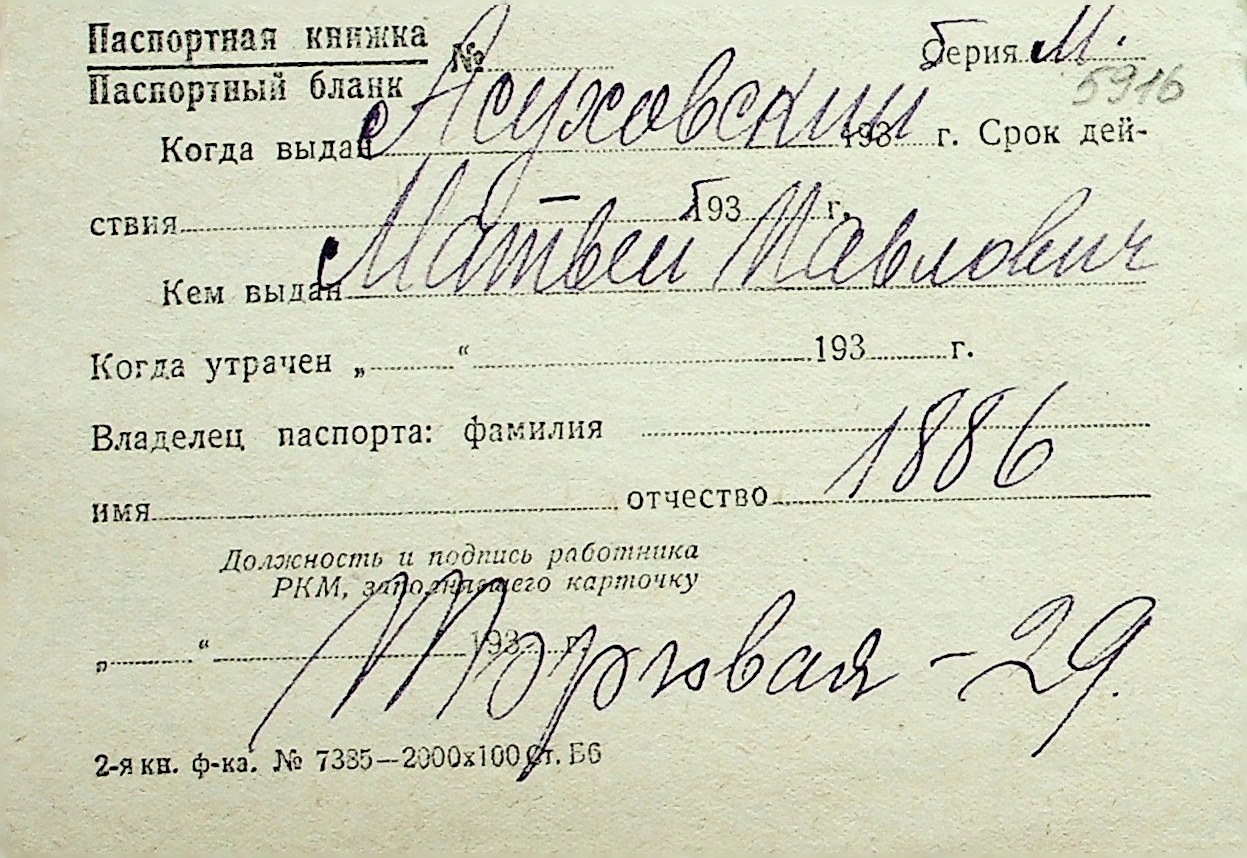 Паспортная книжка № Серия М.
Паспортный бланк 5916
Асуховский
Когда выдан 193 г. Срок дей-
ствия 193 г.
Матвей Павлович
Кем выдан
Когда утрачен „ “ 193 г.
Владелец паспорта: фамилия
1886
имя отчество
Должность и подпись работника
РКМ, заполнявшего карточку
„ “ 193 г.
Торговая – 29.
2-я кн. ф-ка. № 7385—2000х100 Ст. Б6